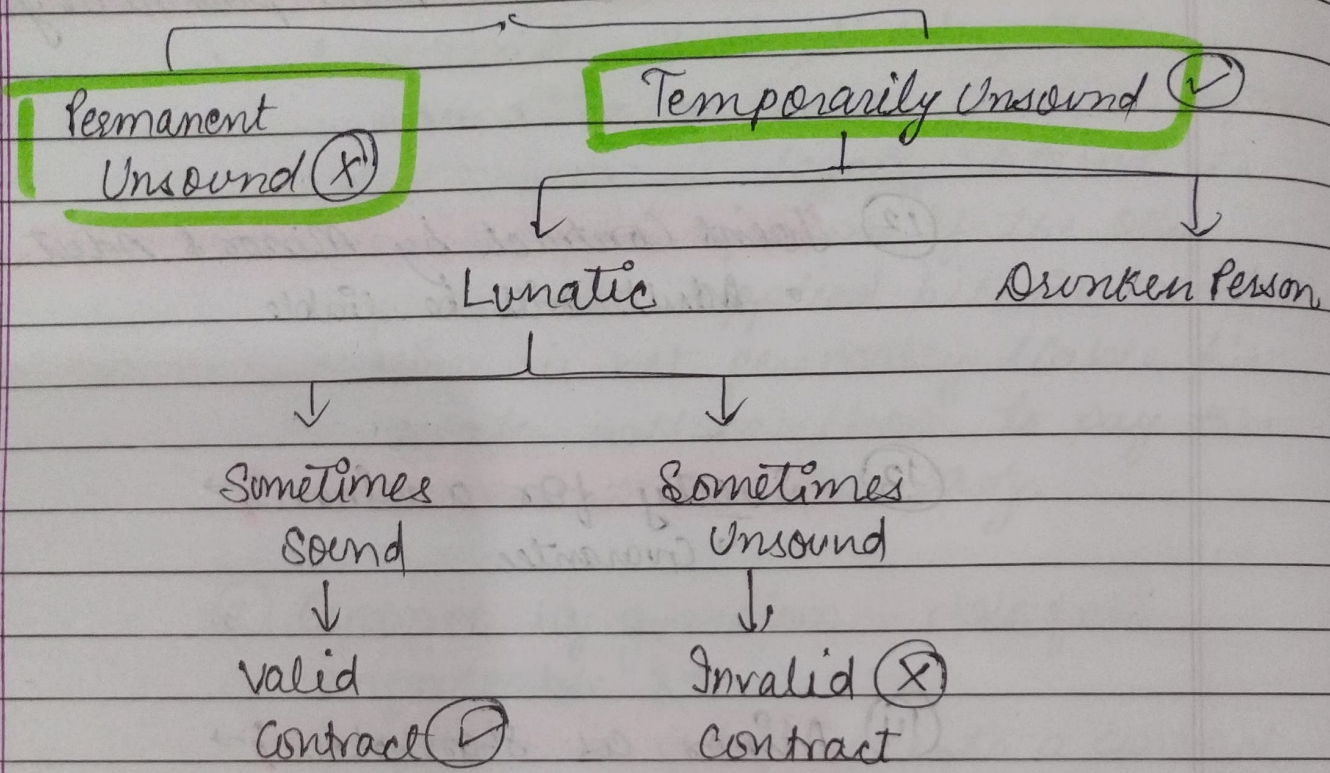 Permanent
Unsound
Temporarily Unsound
Lunatic
Drunken Person
Sometimes
Sound
Sometimes
Unsound
Valid
Contract
Invalid
Contract